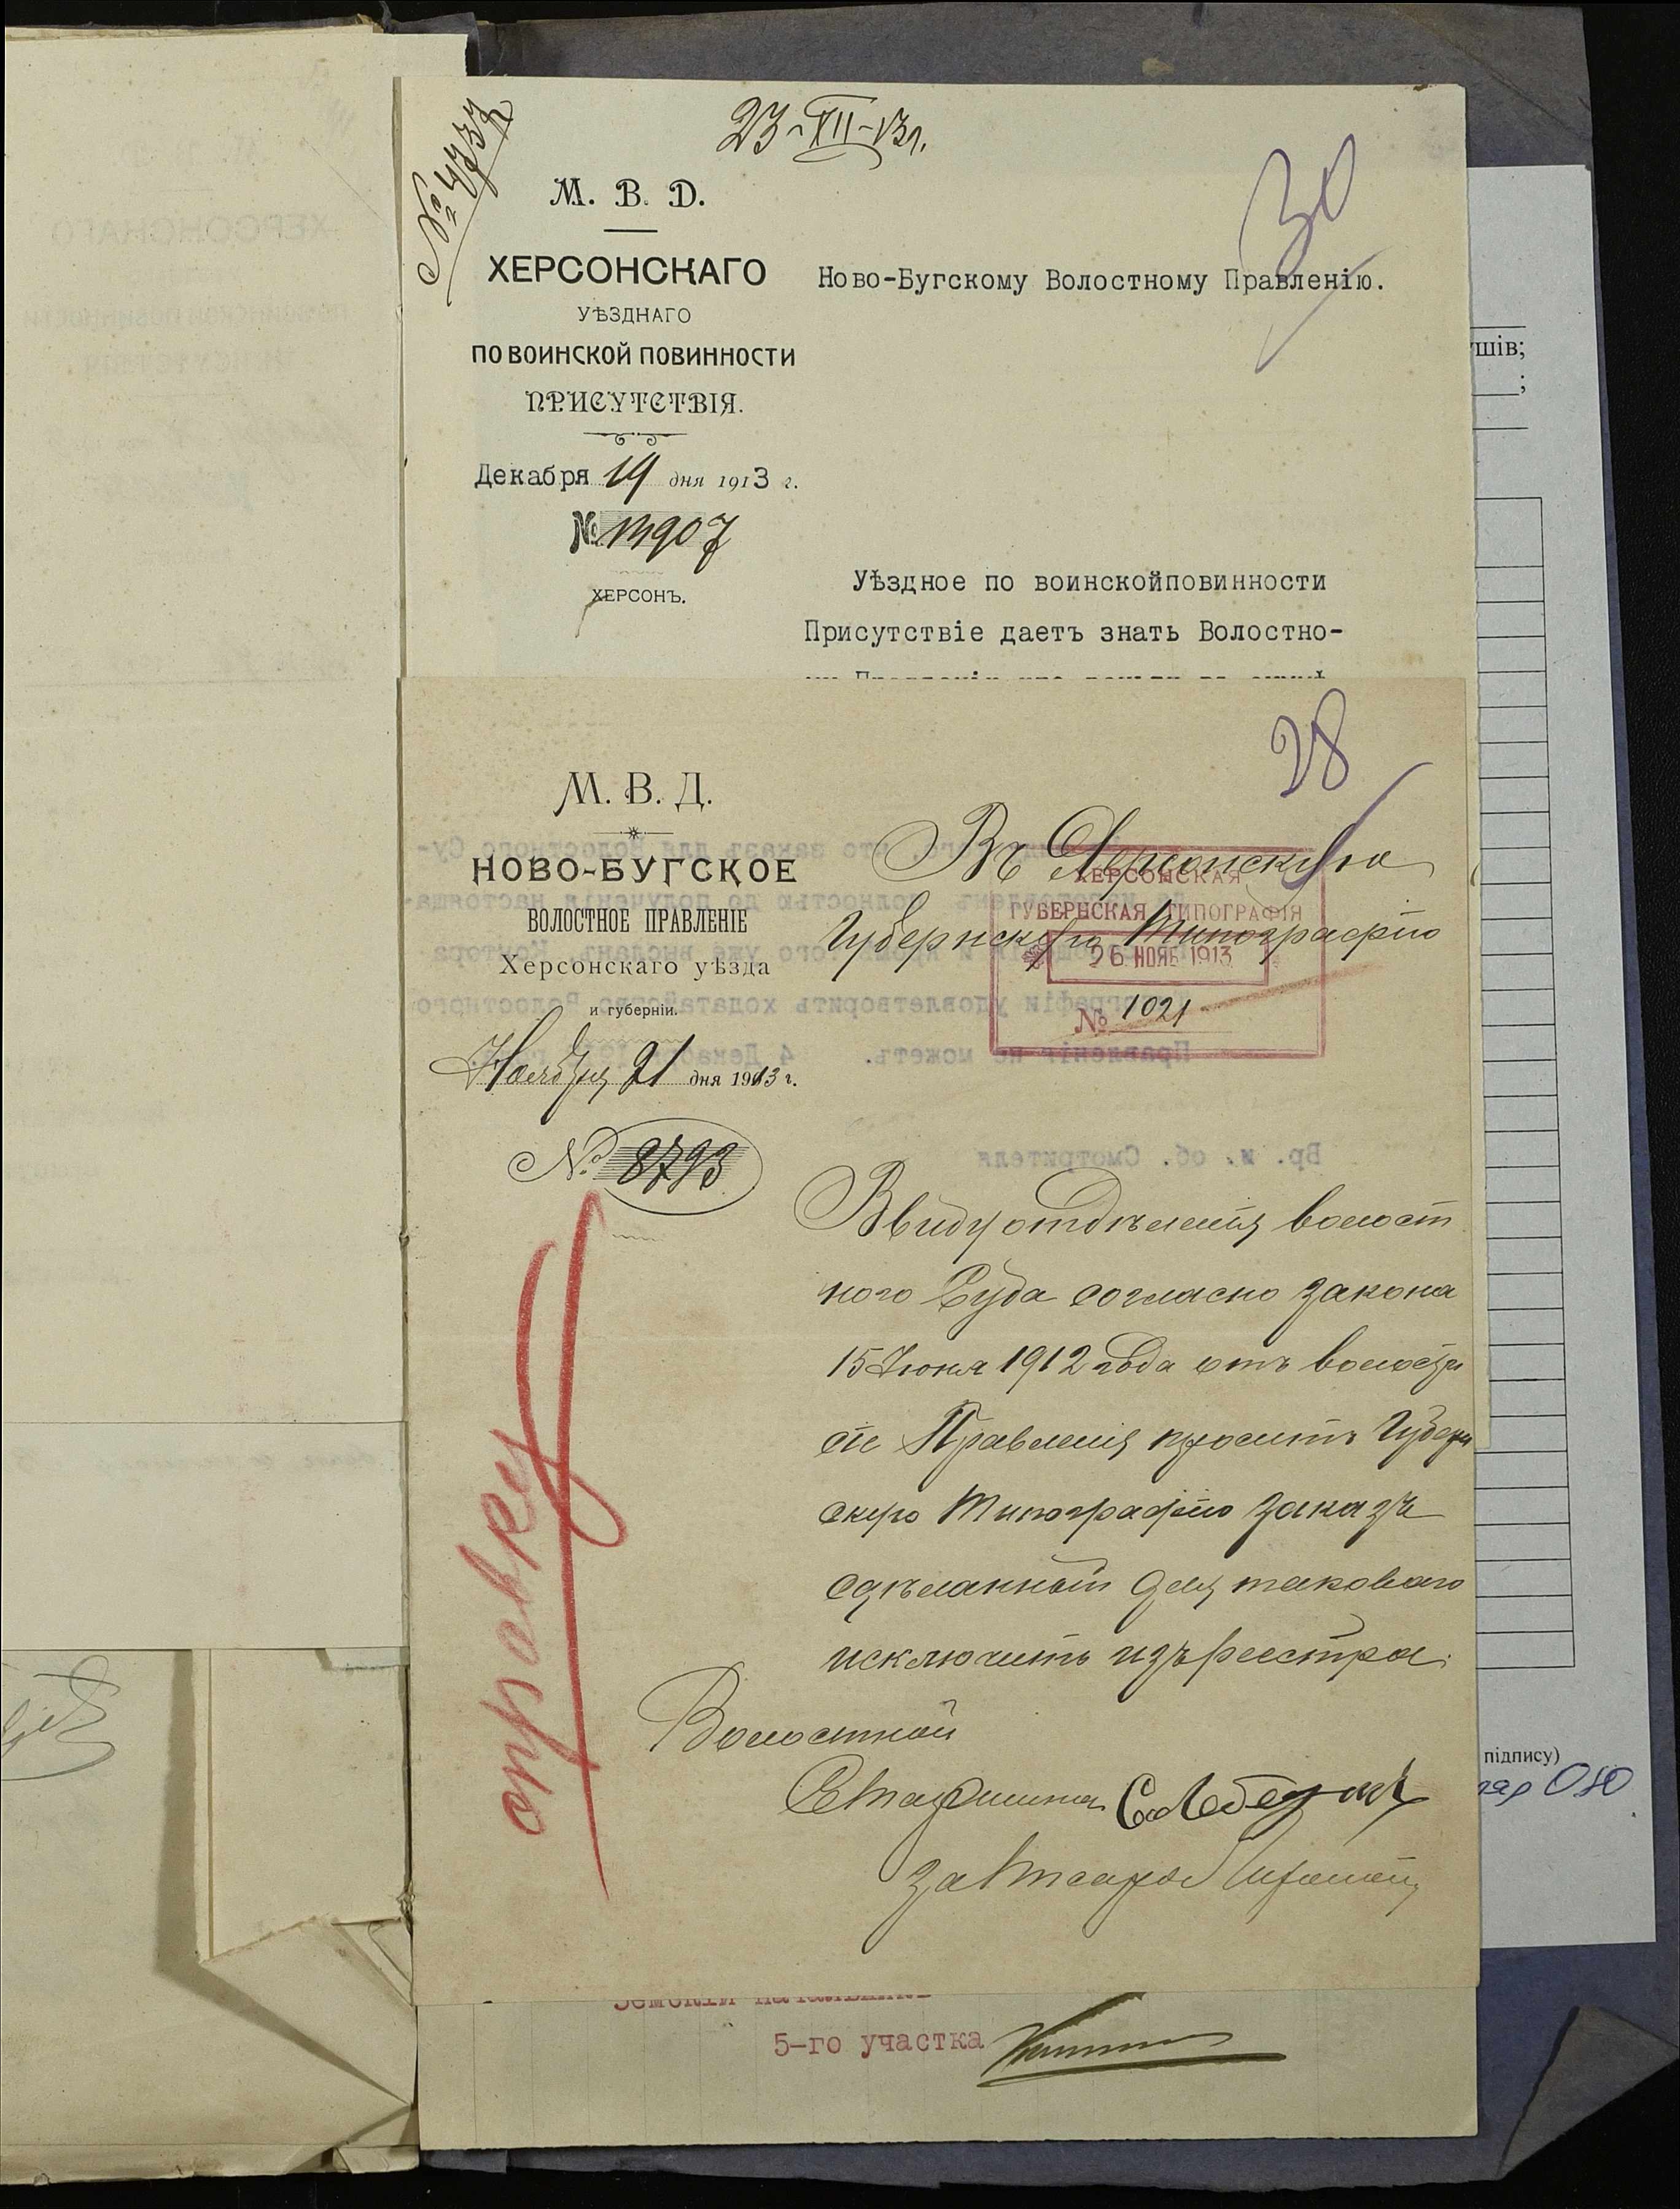 23-XII-13г.
30
М. В. D.
ХЕРСОНСКАГО
УѢЗДНАГО
ПО ВОИНСКОЙ ПОВИННОСТИ
ПРИСУТСТВІЯ.
Декабря 19 дня 1913 г.
№
ХЕРСОНЪ.
Ново-Бугскому Волостному Правленію.
Уѣздное по воинскойповинности
Присутствіе даетъ знать Волостно-
28
М. В. Д.
НОВО-БУГСКОЕ
ВОЛОСТНОЕ ПРАВЛЕНІЕ
Херсонскаго уѣзда
и губерніи.
Ноября 21 дня 1913 г.
№ 8793
Въ Херсонскую
Губернскую Типографію
ХЕРСОНСКАЯ
ГУБЕРНСКАЯ ТИПОГРАФІЯ
26 НОЯБ 1913
№ 1021
Ввиду отдѣленія волост
ного Суда согласно закона
15 Іюня 1912 года отъ
Правленія проситъ Губерн
скую Типографію заказъ
сдѣланный для таковаго
исключить изъ реестра.
Волостной
Старшина
справку
5-го участка
шів;
;
підпису)